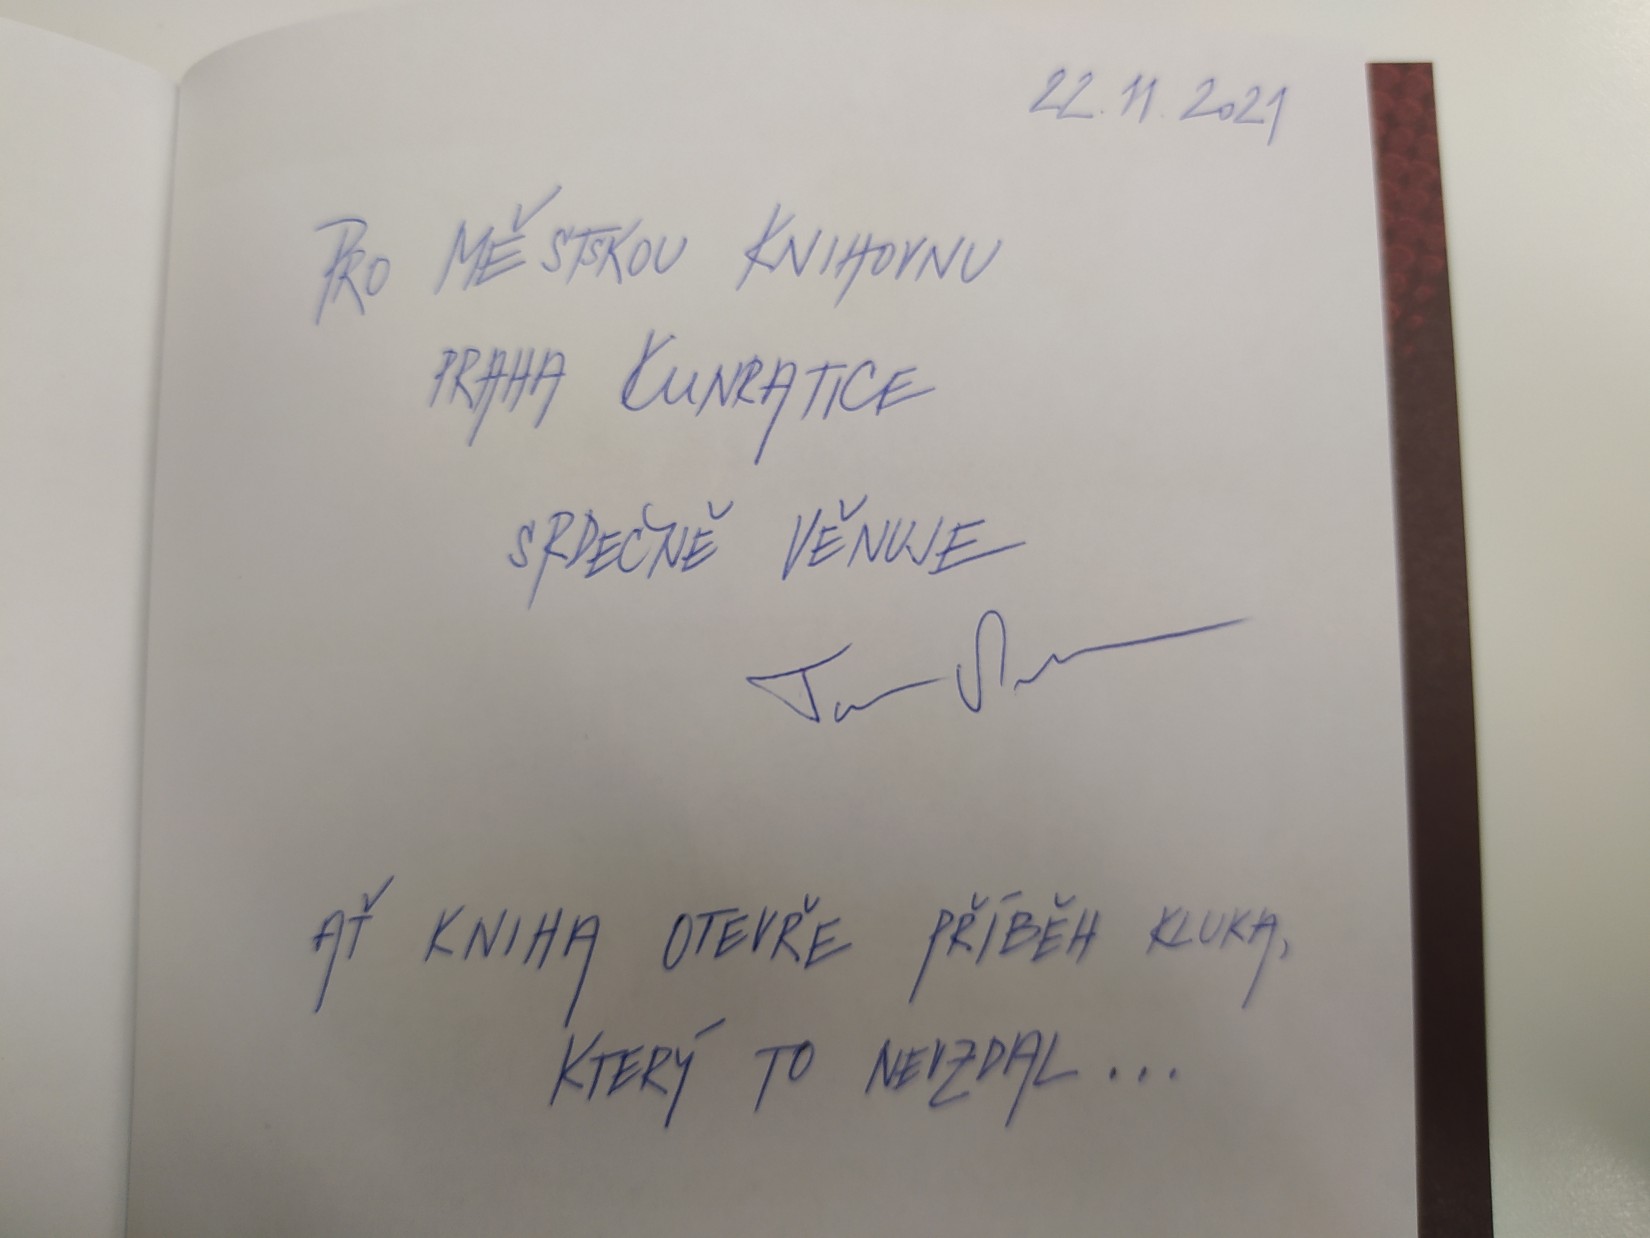 22.11.2021
PRO MĚSTSKOU KNIHOVNU
PRAHA KUNRATICE
SRDEČNĚ VĚNUJE
AŤ KNIHA OTEVŘE PŘÍBĚH KLUKA,
KTERÝ TO NEVZDAL...